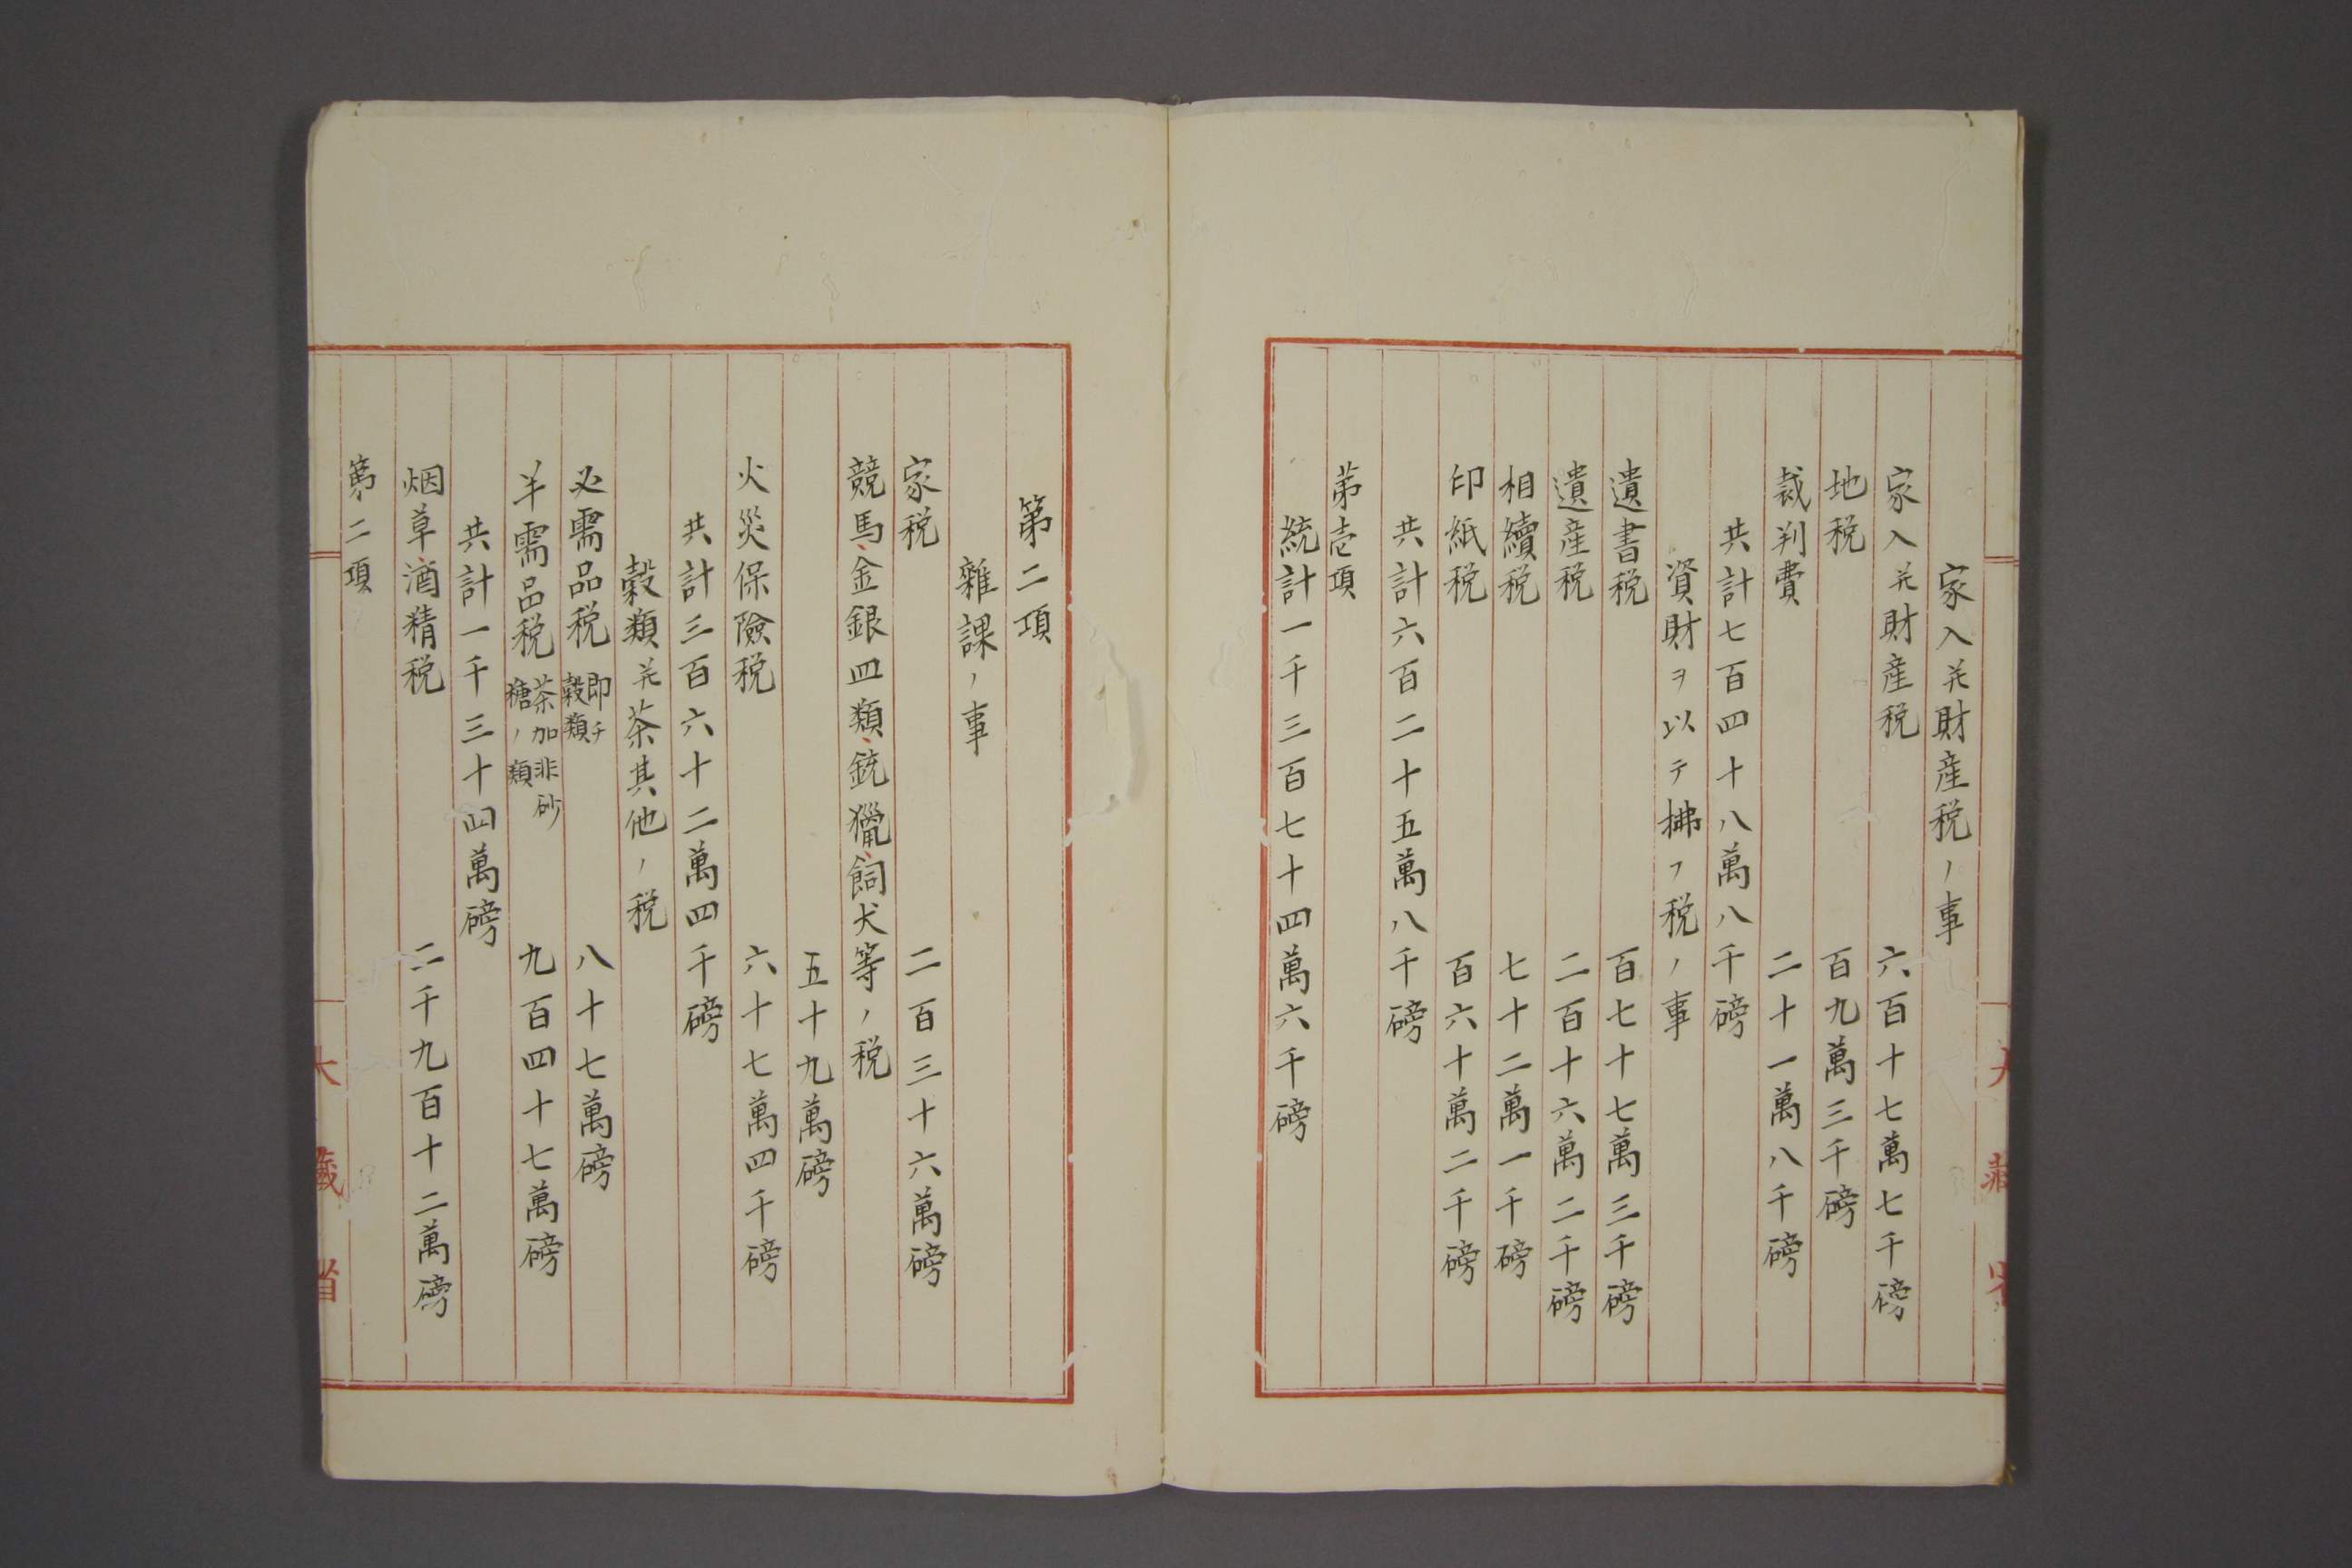 家入并財産税ノ事
家入并財産税 六百十七萬七千磅
地税 百九萬三千磅
裁判費 二十一萬八千磅
共計七百四十八萬八千磅
資財ヲ以テ拂フ税ノ事
遺書税 百七十七萬三千磅
遺産税 二百十六萬二千磅
相續税 七十二萬一千磅
印紙税 百六十萬二千磅
共計六百二十五萬八千磅
苐壱項
統計一千三百七十四萬六千磅
第二項
雜課ノ事
家税 二百三十六萬磅
競馬、金銀皿類、銃獵、飼犬等ノ税
五十九萬磅
火災保險税 六十七萬四千磅
共計三百六十二萬四千磅
穀類并茶其他ノ税
必需品税 即チ穀類 八十七萬磅
半需品税 茶加非砂糖ノ類 九百四十七萬磅
共計一千三十四萬磅
烟草、酒精税 二千九百十二萬磅
第二項
大藏省